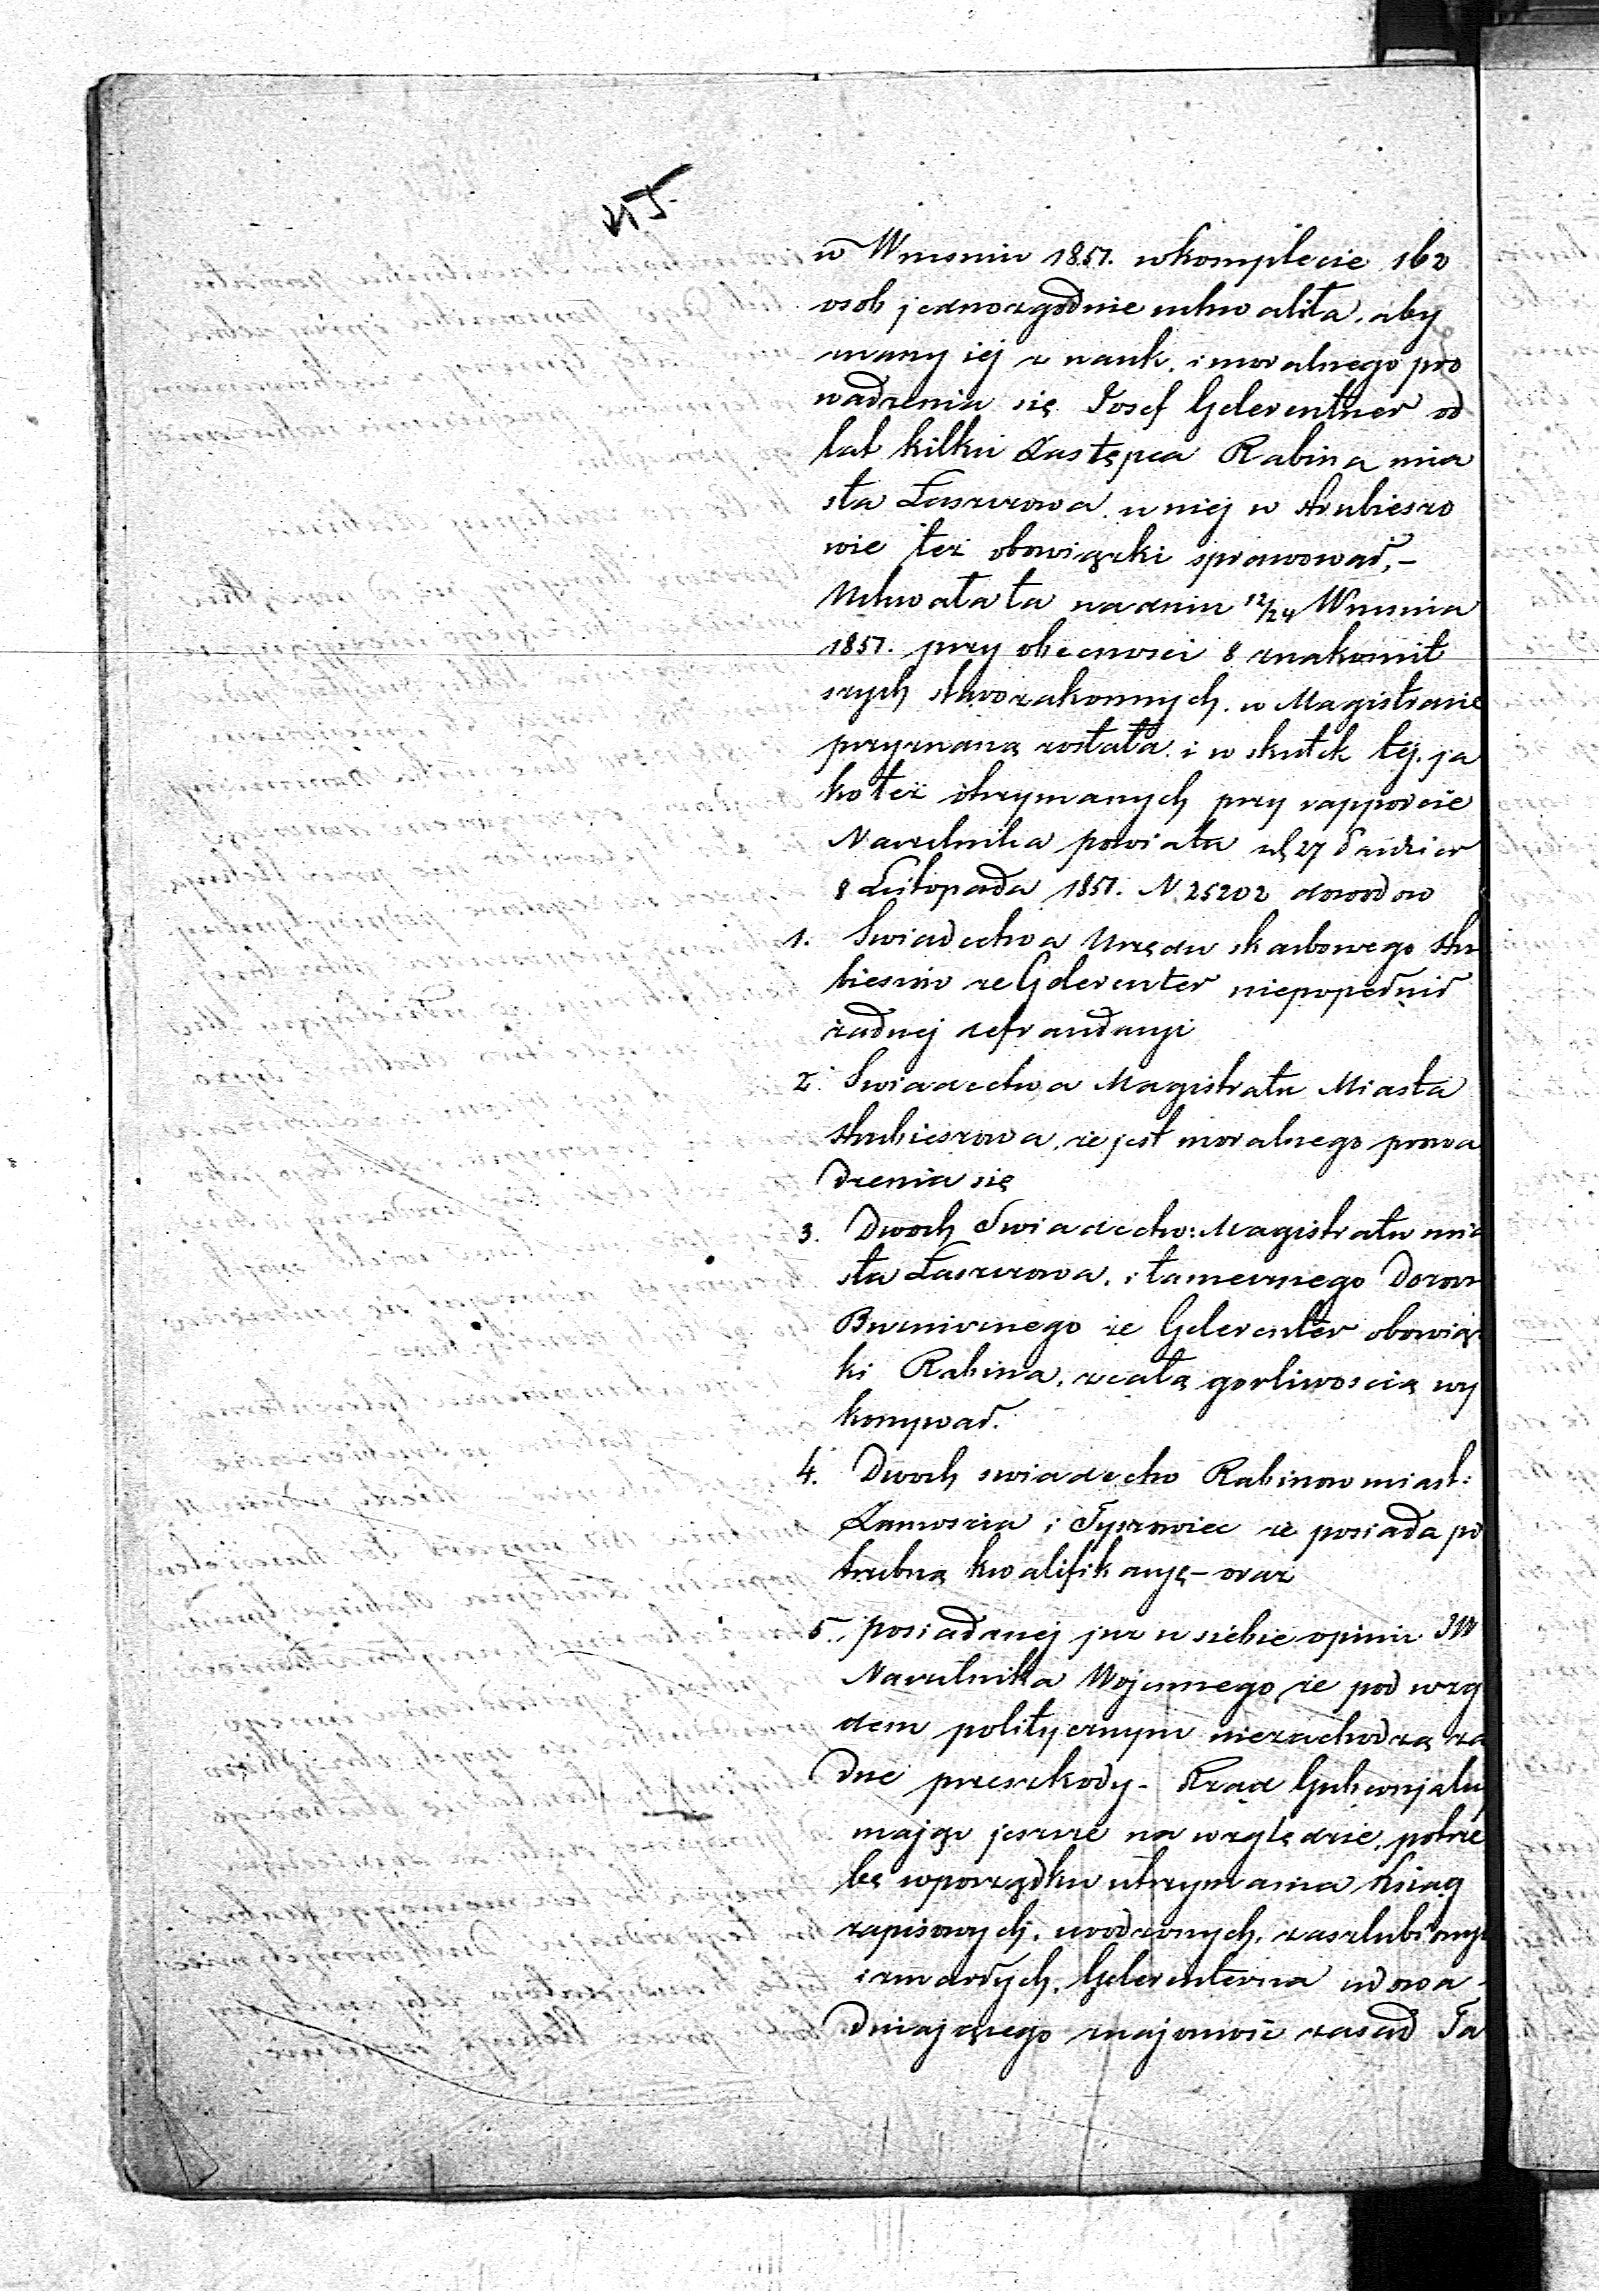 215
w Wrzesniu 1851. wkomplecie 162
osob jednozgodnie uchwaliła, aby
znany iej z nauk, i moralnego pro
wadzenia się Josef Gelerenther od
lat kilku Zastępca Rabina mia
sta Łaszczowa, u niej w Hrubieszo
wie też obowiązki sprawował, –
Uchwała ta na dniu 12/24 Wrzesnia
1851. przy obecnosci 8 znakomit
szych starozakonnych, w Magistracie
przyznaną została, i w skutek tej, ja
ko też otrzymanych przy rapporcie
Naczelnika powiatu z 27 Paździer
8 Listopada 1851. N. 25202 dowodow
1. Swiadectwa Urzędu skarbowego Hru
bieszow ze Gelerenter niepopełnił
żadnej defraudacyi
2. Swiadectwa Magistratu Miasta
Hrubieszowa, że jest moralnego prowa
dzenia się
3. Dwoch Swiadectw: Magistratu mia
sta Łaszczowa, i tamecznego Dozoru
Bożniczego że Gelerenter obowiąz
ki Rabina, z całą gorliwoscią wy
konywał.
4. Dwoch swiadectw Rabinow miast:
Zamoscia i Tyszowiec że posiada po
trzebną kwalifikacyę – oraz
5. posiadanej juz u siebie opinii JW
Naczelnika Wojennego, że pod wzglę
dem politycznym niezachodzą ża
dne przeszkody – Rząd Gubernjalny
mając jeszcze na względzie, potrze
bę wporządku utrzymania Ksiąg
zapisowych, urodzonych, zaszlubionych
i zmarłych, Gelerentera udowa
dniającego znajomosc zasad Ta